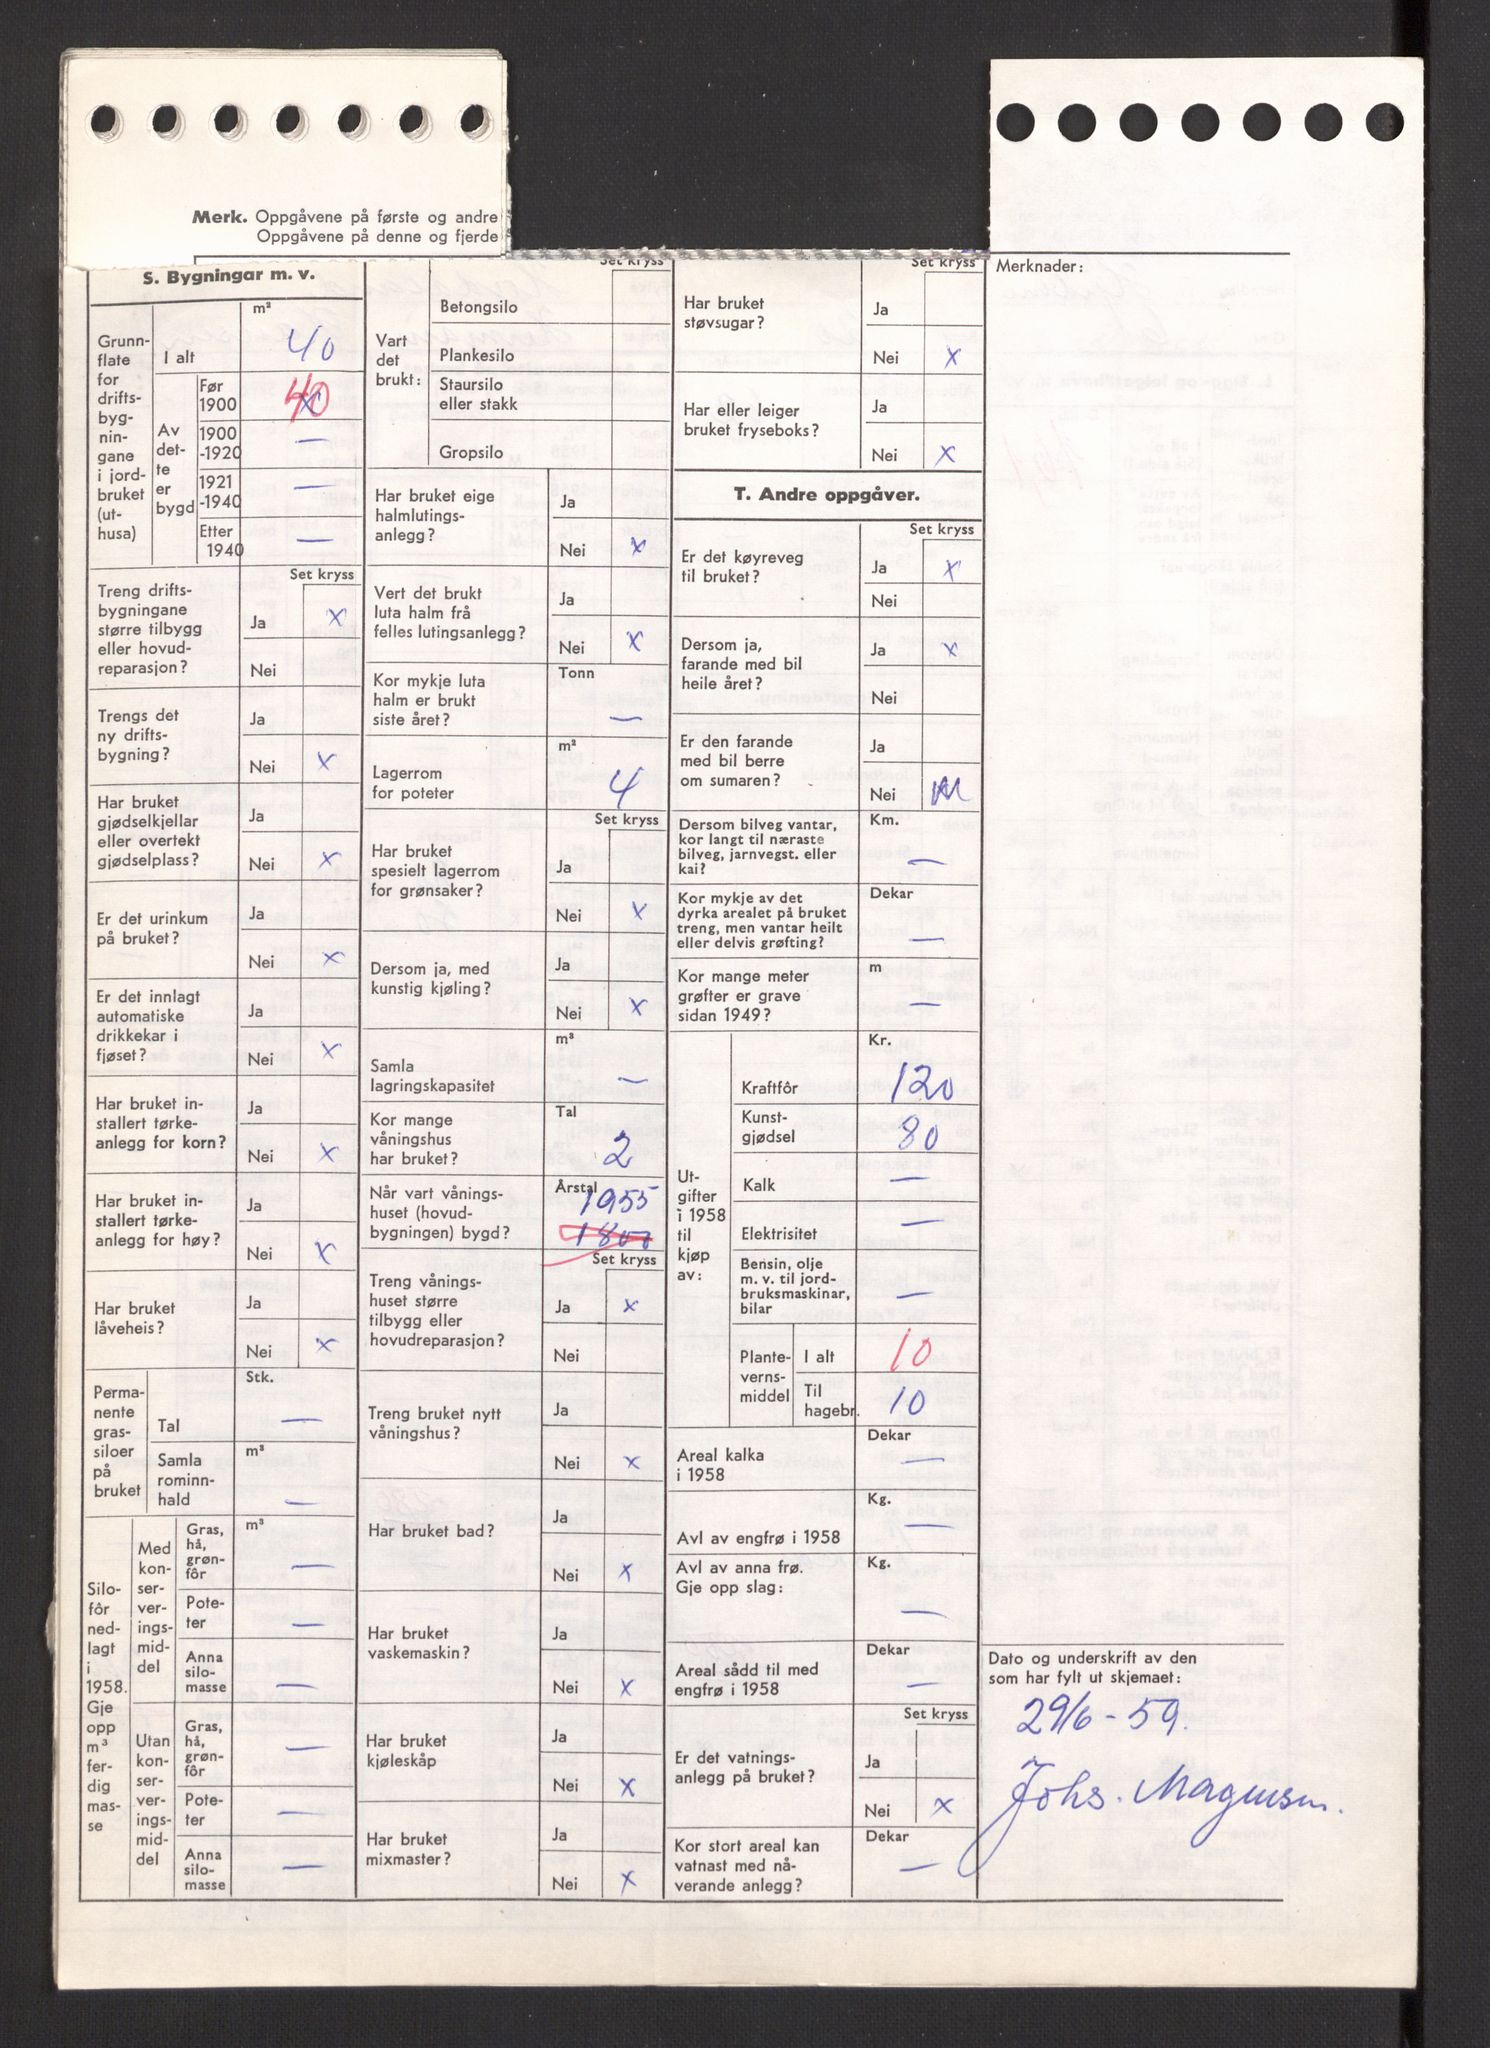 Merk. Oppgåvene på første og andre
Oppgåvene på denne og fjerde
S. Bygningar m. v.
m²
Grunnflate for driftsbygningane i jordbruket (uthusa)
I alt 40
Av dette er bygd
Før 1900 40 x
1900-1920 —
1921-1940 —
Etter 1940 —
Set kryss
Treng driftsbygningane større tilbygg eller hovudreparasjon?
Ja x
Nei
Trengs det ny driftsbygning?
Ja
Nei x
Har bruket gjødselkjellar eller overtekt gjødselplass?
Ja
Nei x
Er det urinkum på bruket?
Ja
Nei x
Er det innlagt automatiske drikkekar i fjøset?
Ja
Nei x
Har bruket installert tørkeanlegg for korn?
Ja
Nei x
Har bruket installert tørkeanlegg for høy?
Ja
Nei x
Har bruket låveheis?
Ja
Nei x
Permanente grassiloer på bruket
Stk.
Tal —
m³
Samla rominnhald —
Silofôr nedlagt i 1958. Gje opp m³ ferdig masse
m³
Med konserveringsmiddel
Gras, hå, grønfôr —
Poteter —
Anna silomasse —
Utan konserveringsmiddel
Gras, hå, grønfôr —
Poteter —
Anna silomasse —
Set kryss
Vart det brukt:
Betongsilo
Plankesilo
Staursilo eller stakk
Gropsilo
Har bruket eige halmlutingsanlegg?
Ja
Nei x
Vert det brukt luta halm frå felles lutingsanlegg?
Ja
Nei x
Tonn
Kor mykje luta halm er brukt siste året? —
m²
Lagerrom for poteter 4
Set kryss
Har bruket spesielt lagerrom for grønsaker?
Ja
Nei x
Dersom ja, med kunstig kjøling?
Ja
Nei x
m³
Samla lagringskapasitet —
Tal
Kor mange våningshus har bruket? 2
Årstal
Når vart våningshuset (hovudbygningen) bygd? 1955
1800
Set kryss
Treng våningshuset større tilbygg eller hovudreparasjon?
Ja x
Nei
Treng bruket nytt våningshus?
Ja
Nei x
Har bruket bad?
Ja
Nei x
Har bruket vaskemaskin?
Ja
Nei x
Har bruket kjøleskåp
Ja
Nei x
Har bruket mixmaster?
Ja
Nei x
Set kryss
Har bruket støvsugar?
Ja
Nei x
Har eller leiger bruket fryseboks?
Ja
Nei x
T. Andre oppgåver.
Set kryss
Er det køyreveg til bruket?
Ja x
Nei
Dersom ja, farande med bil heile året?
Ja x
Nei
Er den farande med bil berre om sumaren?
Ja
Nei
Km.
Dersom bilveg vantar, kor langt til næraste bilveg, jarnvegst. eller kai? —
Dekar
Kor mykje av det dyrka arealet på bruket treng, men vantar heilt eller delvis grøfting? —
m
Kor mange meter grøfter er grave sidan 1949? —
Kr.
Utgifter i 1958 til kjøp av:
Kraftfôr 120
Kunstgjødsel 80
Kalk —
Elektrisitet —
Bensin, olje m. v. til jordbruksmaskinar, bilar —
Plantevernsmiddel
I alt 10
Til hagebr. 10
Dekar
Areal kalka i 1958 —
Kg.
Avl av engfrø i 1958 —
Kg.
Avl av anna frø. Gje opp slag: —
Dekar
Areal sådd til med engfrø i 1958 —
Set kryss
Er det vatningsanlegg på bruket?
Ja
Nei x
Dekar
Kor stort areal kan vatnast med nåverande anlegg? —
Merknader:
Dato og underskrift av den
som har fylt ut skjemaet:
29/6 - 59.
Johs. Magnusen.